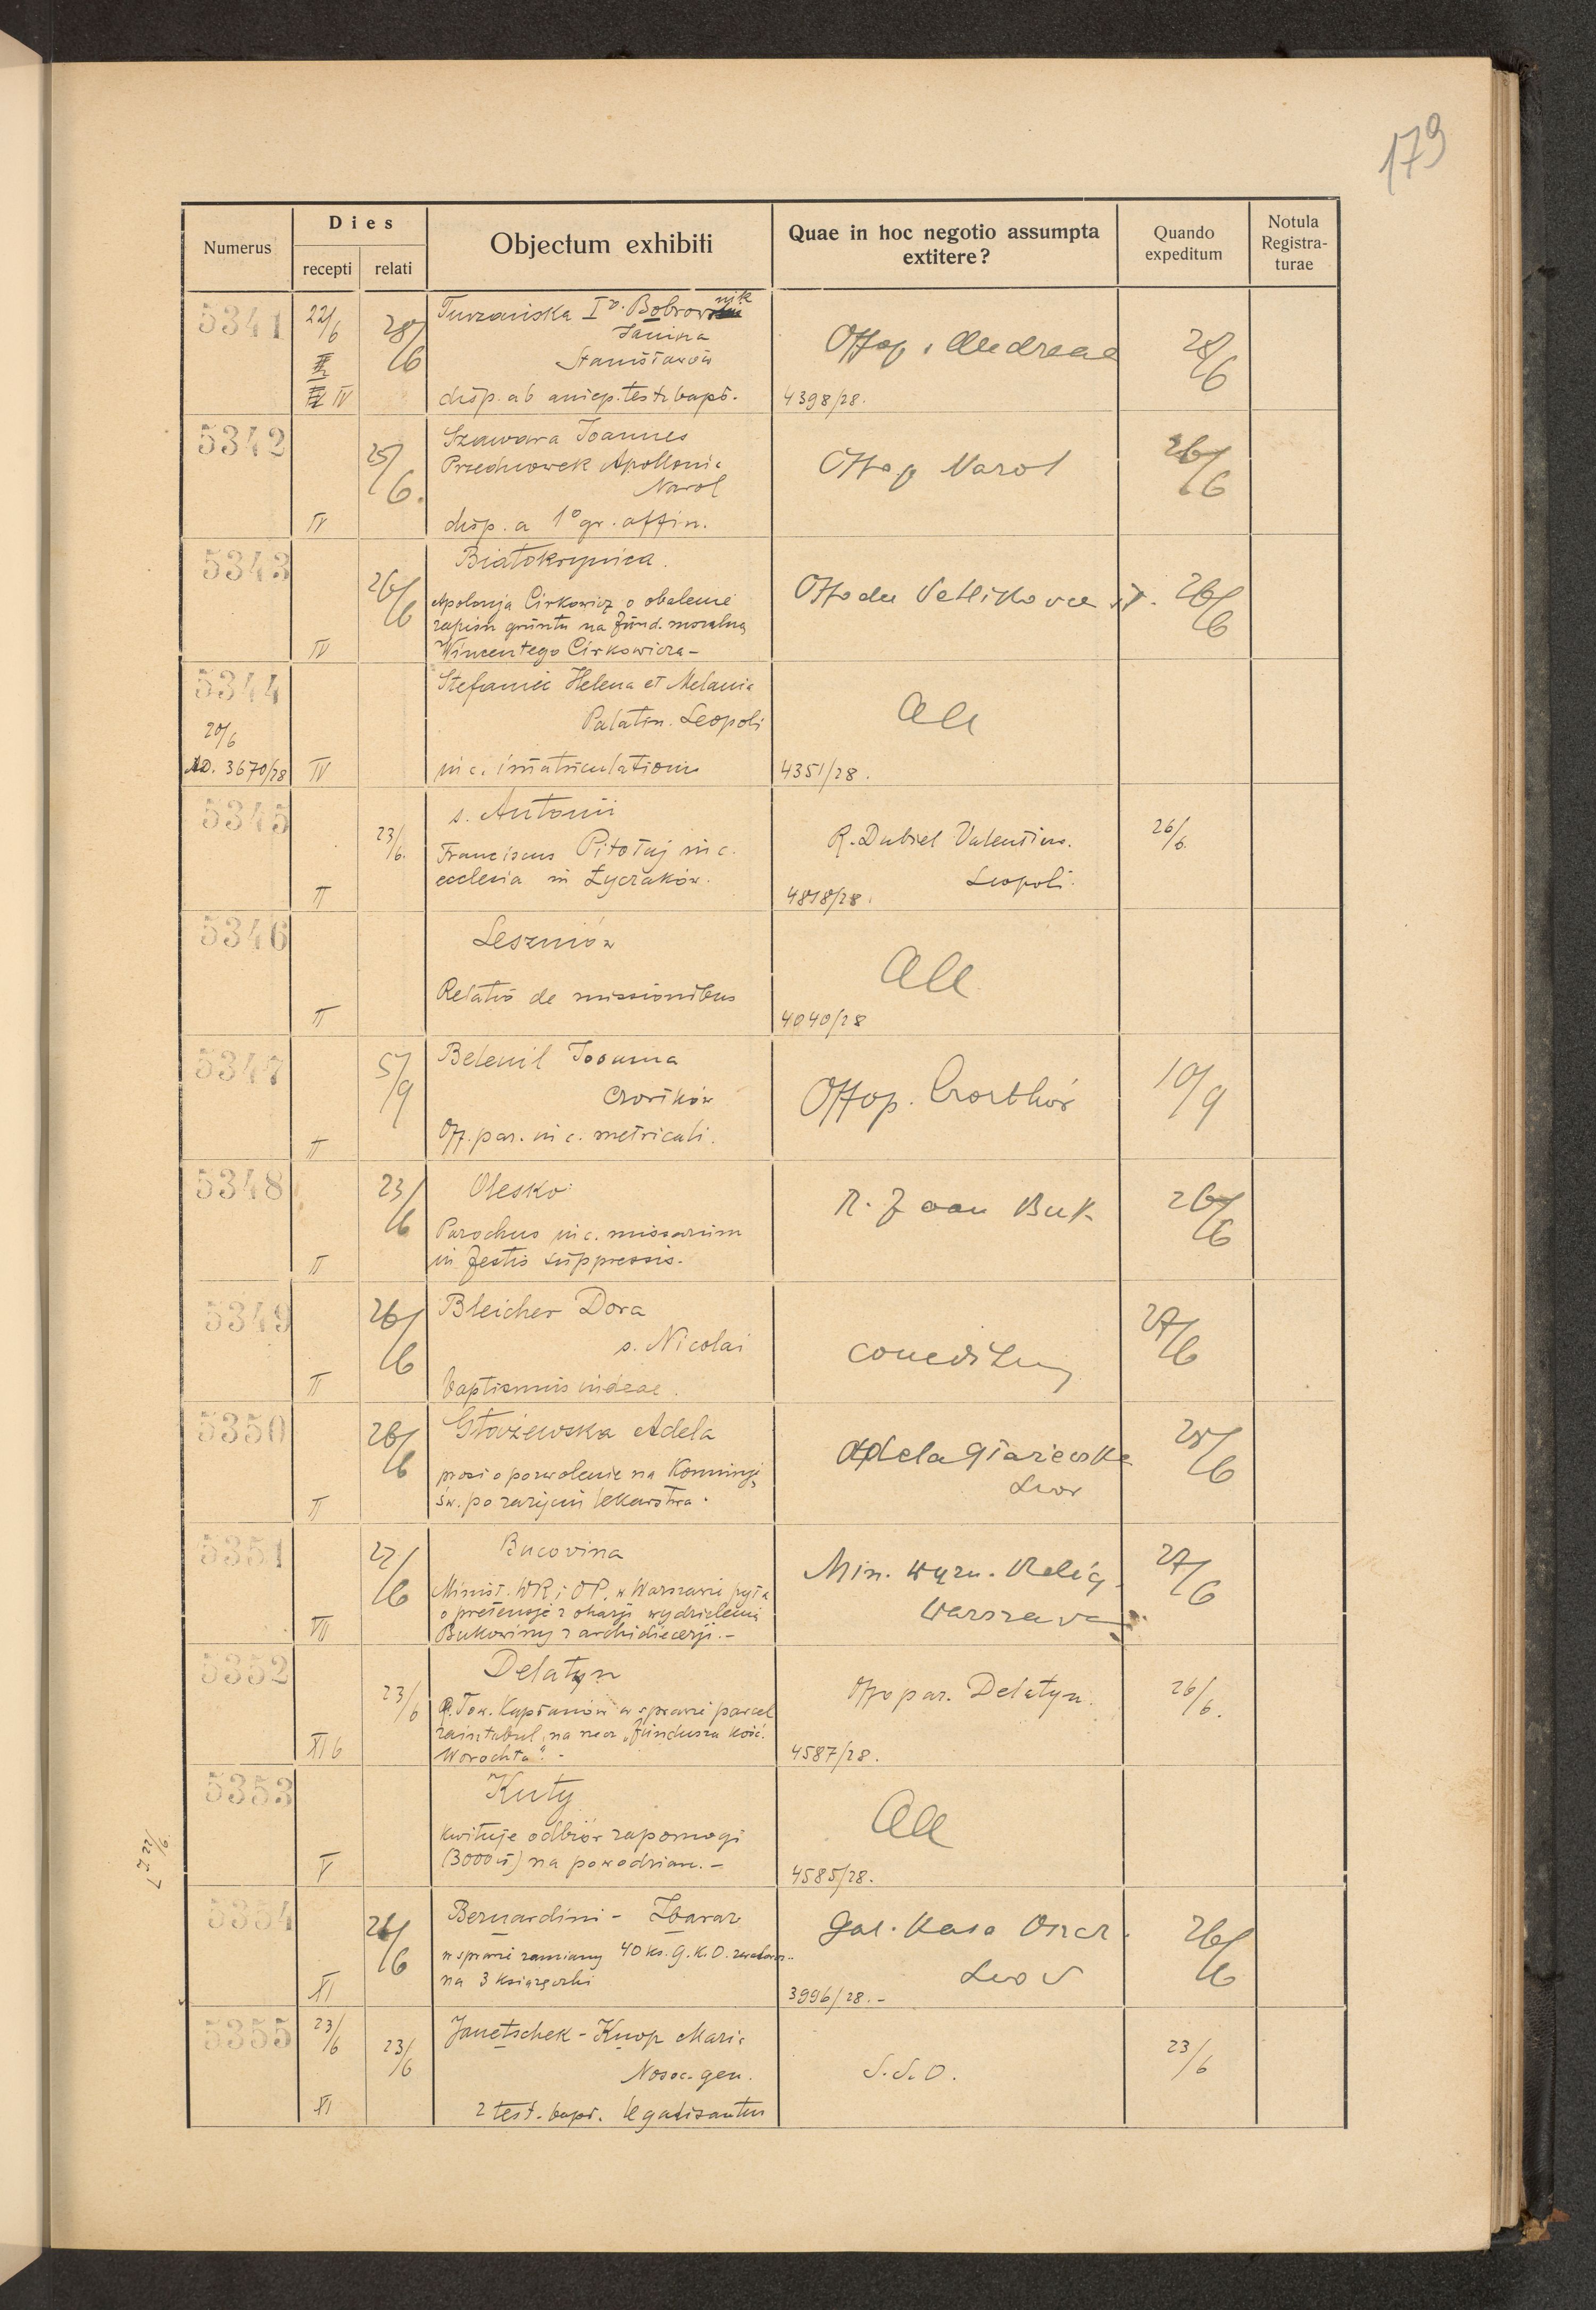 179
Numerus
Dies
recepti
relati
Objectum exhibiti
Quae in hoc negotio assumpta
extitere?
Quando
expeditum
Notula
Registra-
turae
5341
22/6
IV
28/6
Turzańska Iº. Bobrownik
Janina
Stanisławów
disp. ab antep. test. bapt.
Offop. s. Andreae
4398/28.
28/6
5342
IV
25/6.
Szawara Joannes
Apollonia
Narol
disp. a 1º gr. affin.
Offop Narol
26/6
5343
IV
26/6
Białokrynica.
Apolonja Cirkowicz o obalenie
zapisu gruntu na fund. mszalną
Wincentego Cirkowicza-
26/6
5344
20/6
AD. 3670/28
IV
Stefanic Helena et Melania
Palatin. Leopoli
in c. imatriculationis
All
4351/28.
5345
II
23/6.
s. Antonii
Franciscus Pitołaj in c.
ecclesia in Łyczaków.
R. Dubiel Valentin.
Leopoli.
4818/28.
26/6.
5346
II
Leszniów
Relatio de missionibus
All
4040/28
5347
II
5/9
Belenil Joanna
Czortków
Off. par. in c. metricali.
Offop. Czortków
10/9
5348
II
23/6
Olesko
Parochus in c. missarum
in festis suppressis.
R. Joan Buk
26/6
5349
II
26/6
Bleicher Dora
s. Nicolai
baptismus iudeae.
conceditur
27/6
5350
II
26/6
Głażewska Adela
prosi o pozwolenie na Komunję
św. po zażyciu lekarstwa.
Adela Głażewska
Lwów
28/6
5351
VII
27/6
Bucovina
Minist. WR i OP. w Warszawie pyta
o pretensje z okazji wydzielenia
Bukowiny z archidiecezji.-
Min. Wyzn. Relig.
Warszawa
27/6
5352
XI b
23/6
Delatyn
R. Tow. Kapłanów w sprawie parcel
zaintabul. na rzecz „funduszu kość.
Worochta".-
Offo par. Delatyn.
4587/28.
26/6.
5353
V
Kuty
kwituje odbiór zapomogi
(3000 zł) na powodzian.-
All
4585/28.
5354
XI
26/6
Bernardini - Zbaraż
w sprawie zamiany 40 ks. G.K.O.
na 3 książeczki
Gal. Kasa Oszcz.
Lwów
3996/28.-
26/6
5355
23/6
XI
23/6
Janetschek - Knop Maria
Nosoc. gen.
2 test. bapt. legalisantur
S.S.O.
23/6